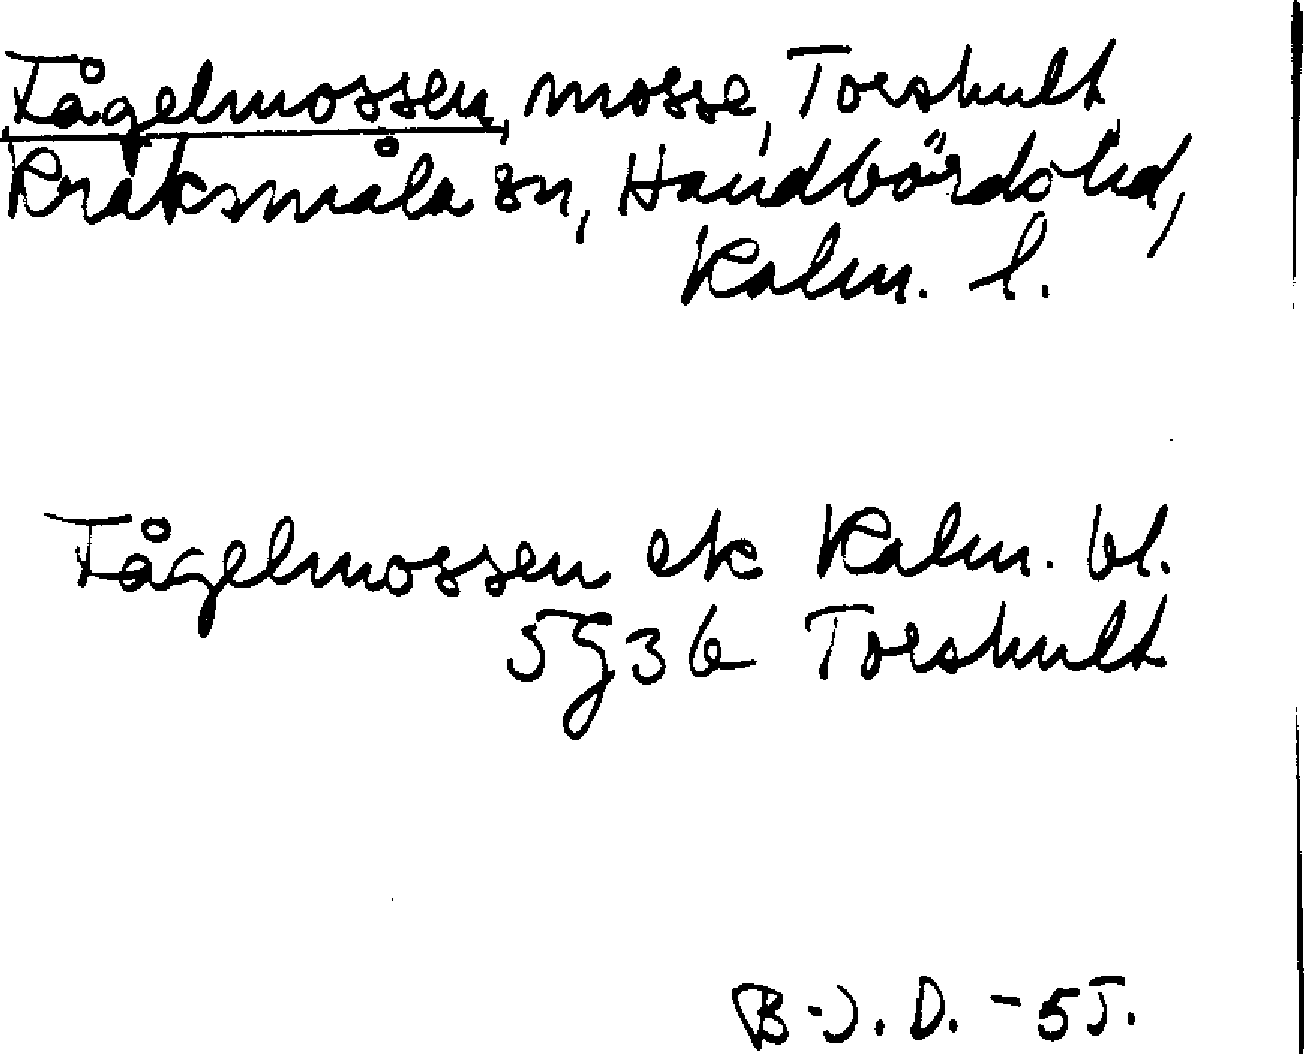 Fågelmossen, mosse, Torshult
Kråksmåla sn, Handbörds hd,
Kalm. l.
Fågelmossen ek Kalm. bl.
5g36 Torshult
B-J. D. - 55.